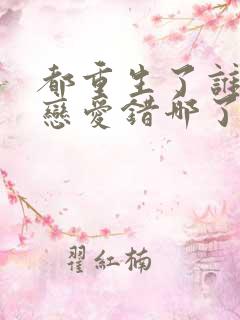 都重生了誰
戀愛錯哪了
翟紅楠